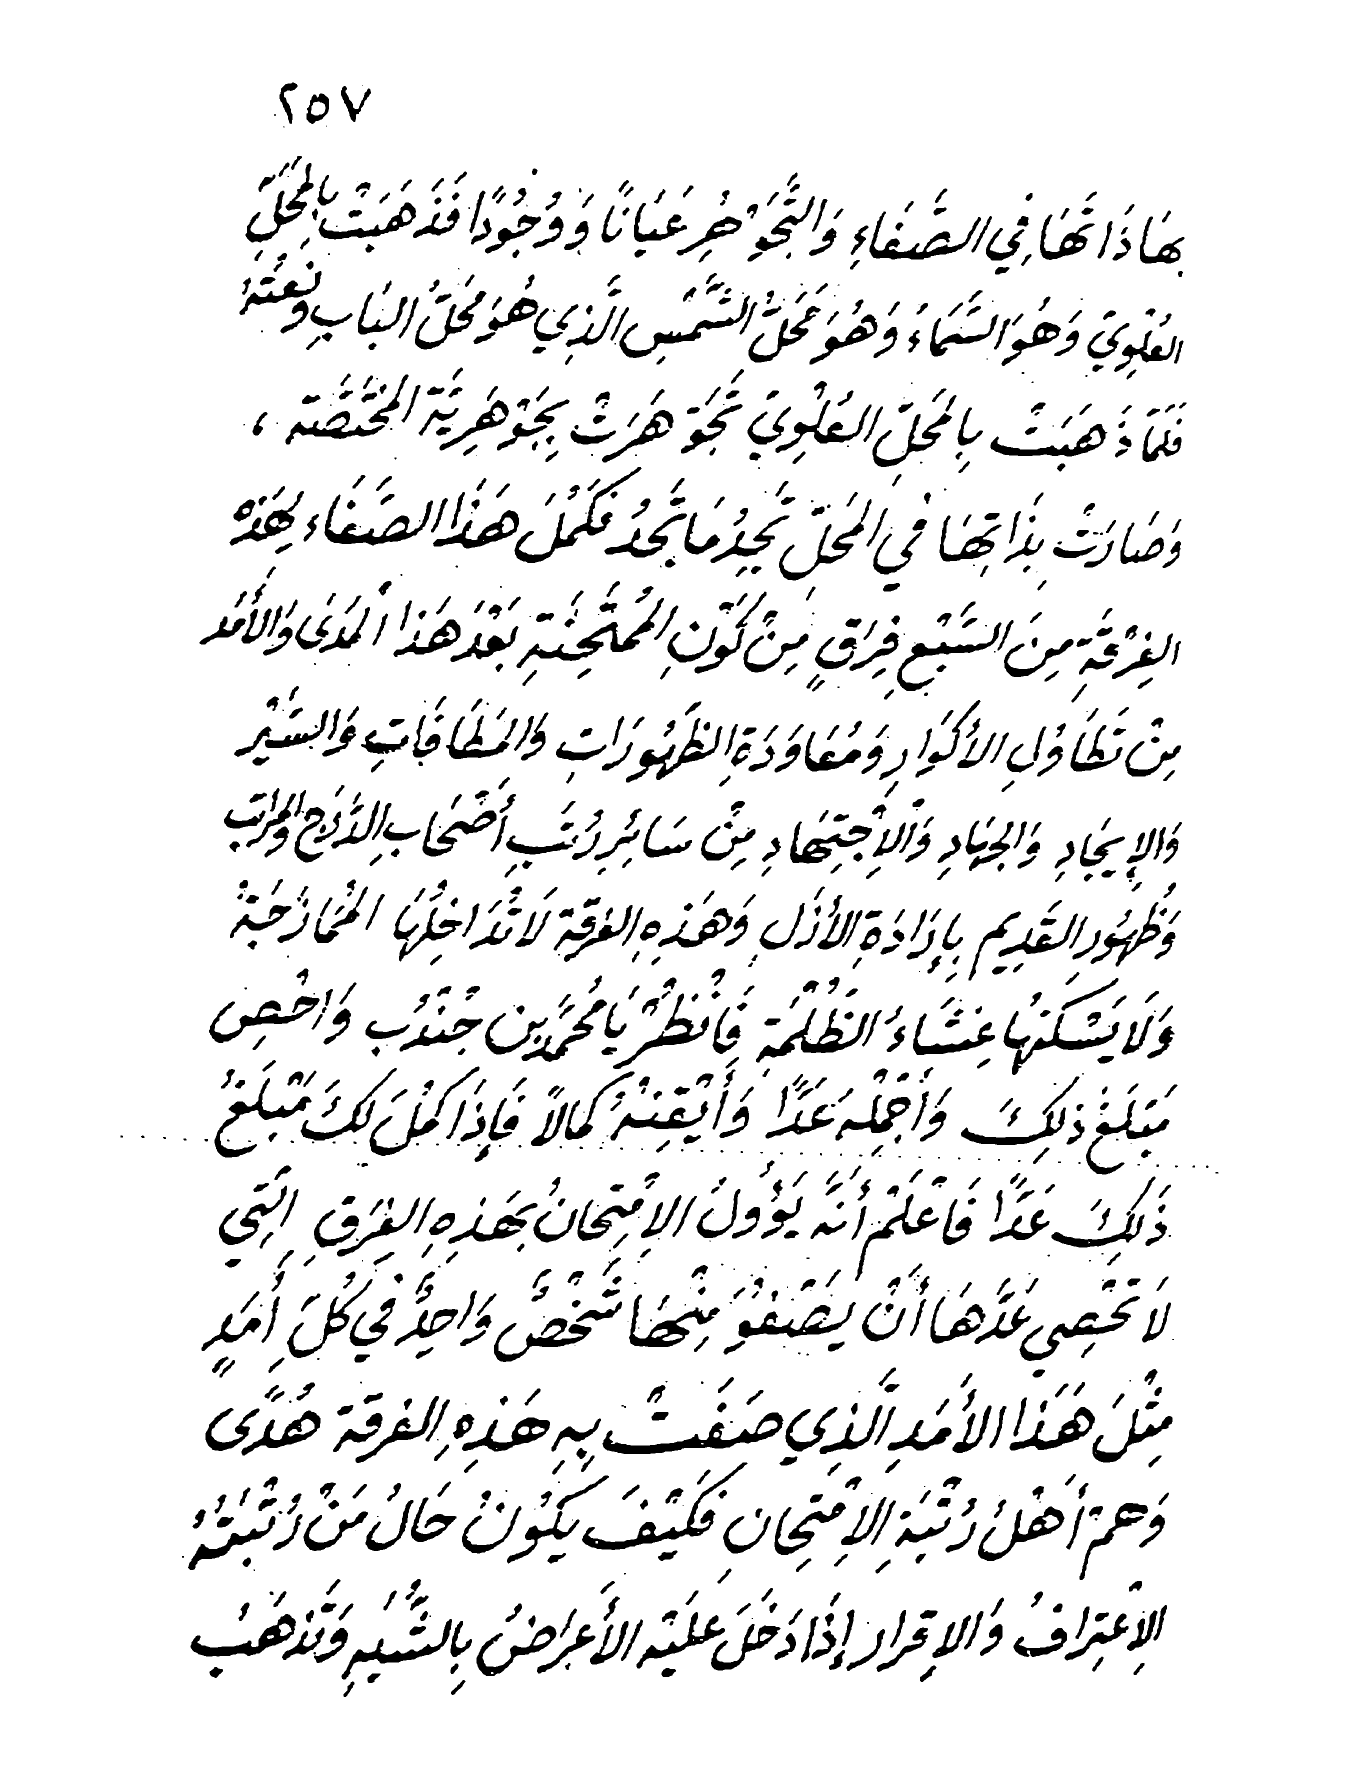 ٢٥٧
بِهَا ذَاتُهَا فِي الصَّفَاءِ وَالتَّجَوْهُرِ عَيَانًا وَوُجُودًا فَذَهَبَتْ بِالمَحَلِّ
العُلْوِيِّ وَهُوَ السَّمَاءُ وَهُوَ مَحَلُّ الشَّمْسِ الَّذِي هُوَ مَحَلُّ البَابِ وَنَعْتُهُ
فَلَمَّا ذَهَبَتْ بِالمَحَلِّ العُلْوِيِّ تَجَوْهَرَتْ بِجَوْهَرِيَّة المُخْتَصَّة ،
وَصَارَتْ بِذَاتِهَا فِي المَحَلِّ تَجِدُ مَا تَجِدُ فَكَمُلَ هَذَا الصَّفَاء لِهَذِهِ
الفِرْقَةِ مِنَ السَّبْعِ فِرَقٍ مِنْ كَوْنِ المُمْتَحِنَةِ بَعْدَ هَذَا المَدَى وَالأَمَد
مِنْ تَطَاوُلِ الأَكْوَارِ وَمُعَاوَدَةِ الظُهُورَاتِ وَالمَطَافَاتِ وَالسَّيْر
وَالإِيجَادِ وَالجِهَادِ وَالاِجْتِهَادِ مِنْ سَائِرِ رُتَبِ أَصْحَابِ الدَّرَجِ وَالمَرَاتِبِ
وَظُهُورِ القَدِيمِ بِإِرَادَةِ الأَزَلِ وَهَذِهِ الفرقَة لَا تُدَاخِلُهَا المُمَازَجَةُ
وَلَا يَسْكُنُهَا غِشَاءُ الظُلْمَةِ فَانْظُرْ يَا مُحَمَّد بِن جُنْدُب وَاحْصِ
مَبْلَغَ ذلِكَ وَأَجْمِلْهُ عَدًّا وَأَيْقِنْهُ كَمالاً فَإِذَا كَمُلَ لَكَ مَبْلَغُ
ذَلِكَ عَدًّا فَاعْلَمْ أَنَّه يَؤُولُ الاِمْتِحَانُ بِهَذِهِ الفِرَقِ الَّتِي
لَا تُحْصِي عَدَّهَا أَنْ يَصْفُوَ مِنْهَا شَخْصٌ وَاحِدٌ فِي كُلِّ أَمَدٍ
مِثْلَ هَذَا الأَمَدِ الَّذِي صَفَتْ بِهِ هَذِهِ الفرقَة هُدًى
وَهمْ أَهْلُ رُتْبَةِ الاِمْتِحَانِ فَكَيْفَ يَكُونُ حَالُ مَنْ رُتْبَتُهُ
الاِعْتِرَافُ وَالإِقرَار إِذَا دَخَلَ عَلَيْهِ الأَعْرَاضُ بِالشُّبَهِ وَتَذهَبُ